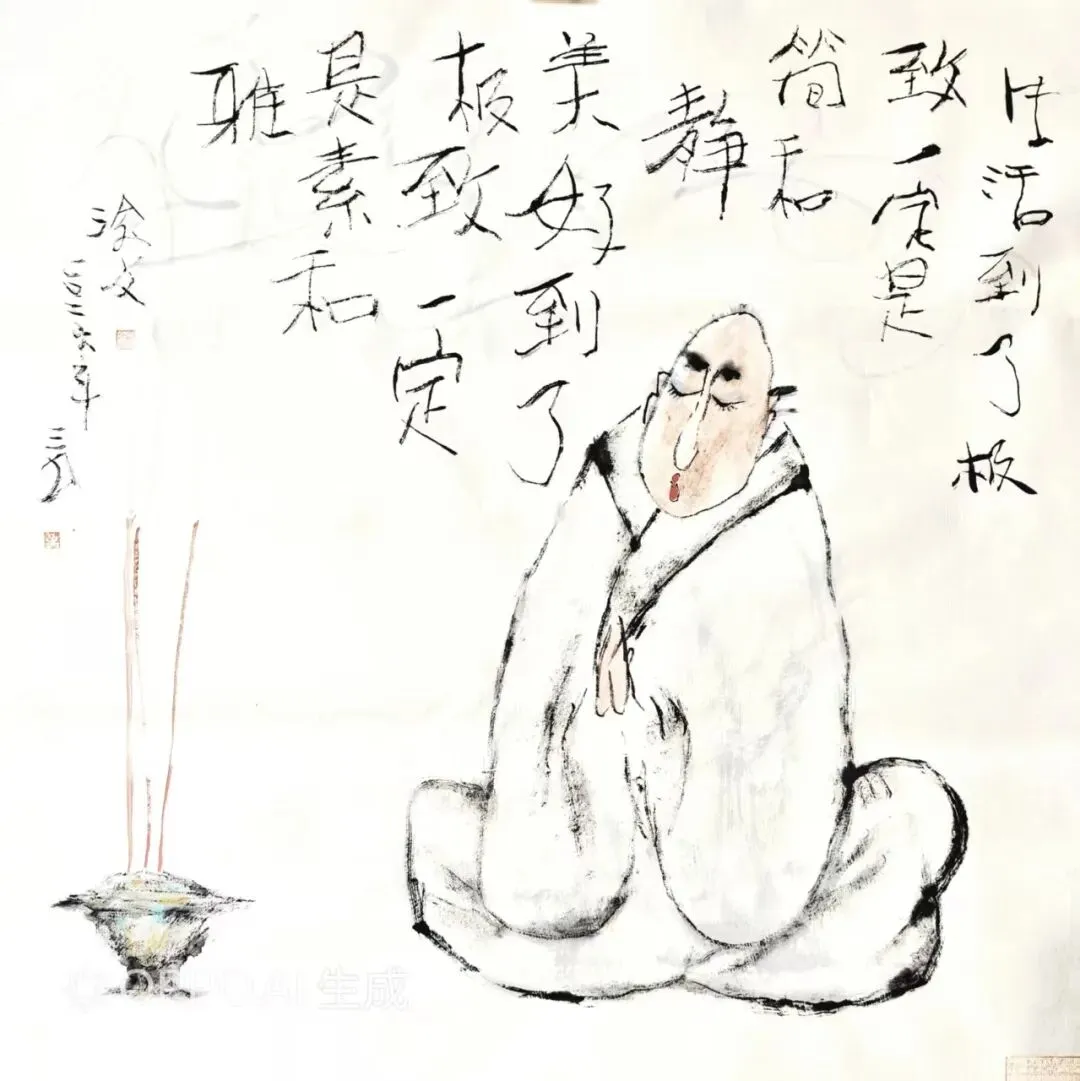 生活到了极
致一定是
简和
静
美好到了
极致一定
是素和
雅
二〇二六年
OPPO AI 生成